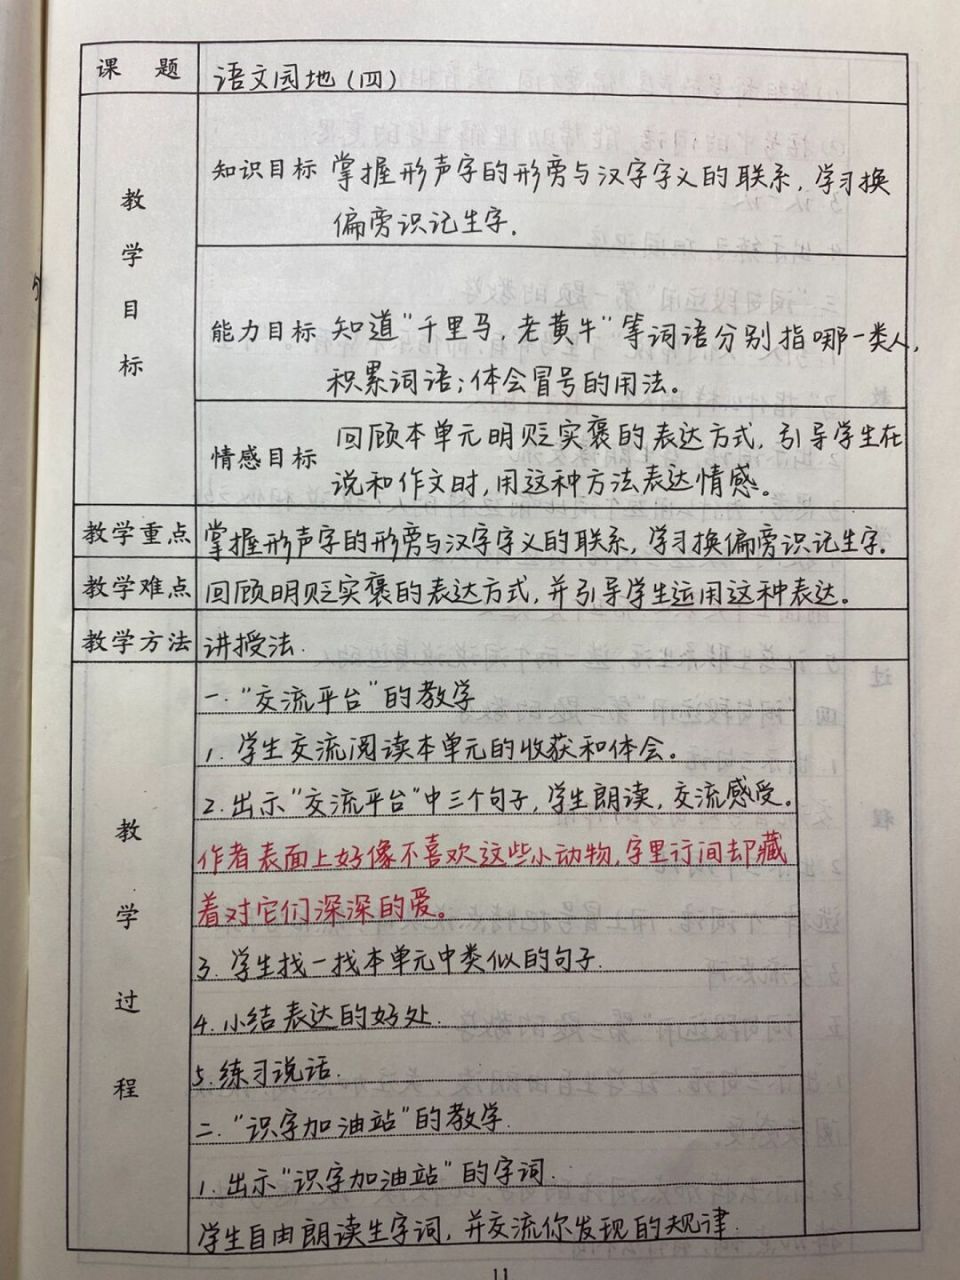 课 题 语文园地(四)
教学目标
知识目标 掌握形声字的形旁与汉字字义的联系,学习换
偏旁识记生字.
能力目标 知道“千里马,老黄牛”等词语分别指哪一类人,
积累词语;体会冒号的用法。
情感目标 回顾本单元明贬实褒的表达方式,引导学生在
说和作文时,用这种方法表达情感。
教学重点 掌握形声字的形旁与汉字字义的联系,学习换偏旁识记生字.
教学难点 回顾明贬实褒的表达方式,并引导学生运用这种表达。
教学方法 讲授法.
教学过程
一.“交流平台”的教学
1.学生交流阅读本单元的收获和体会。
2.出示“交流平台”中三个句子,学生朗读,交流感受。
作者表面上好像不喜欢这些小动物,字里行间却藏
着对它们深深的爱。
3.学生找一找本单元中类似的句子.
4.小结表达的好处.
5.练习说话.
二.“识字加油站”的教学.
1.出示“识字加油站”的字词.
学生自由朗读生字词,并交流你发现的规律.
11